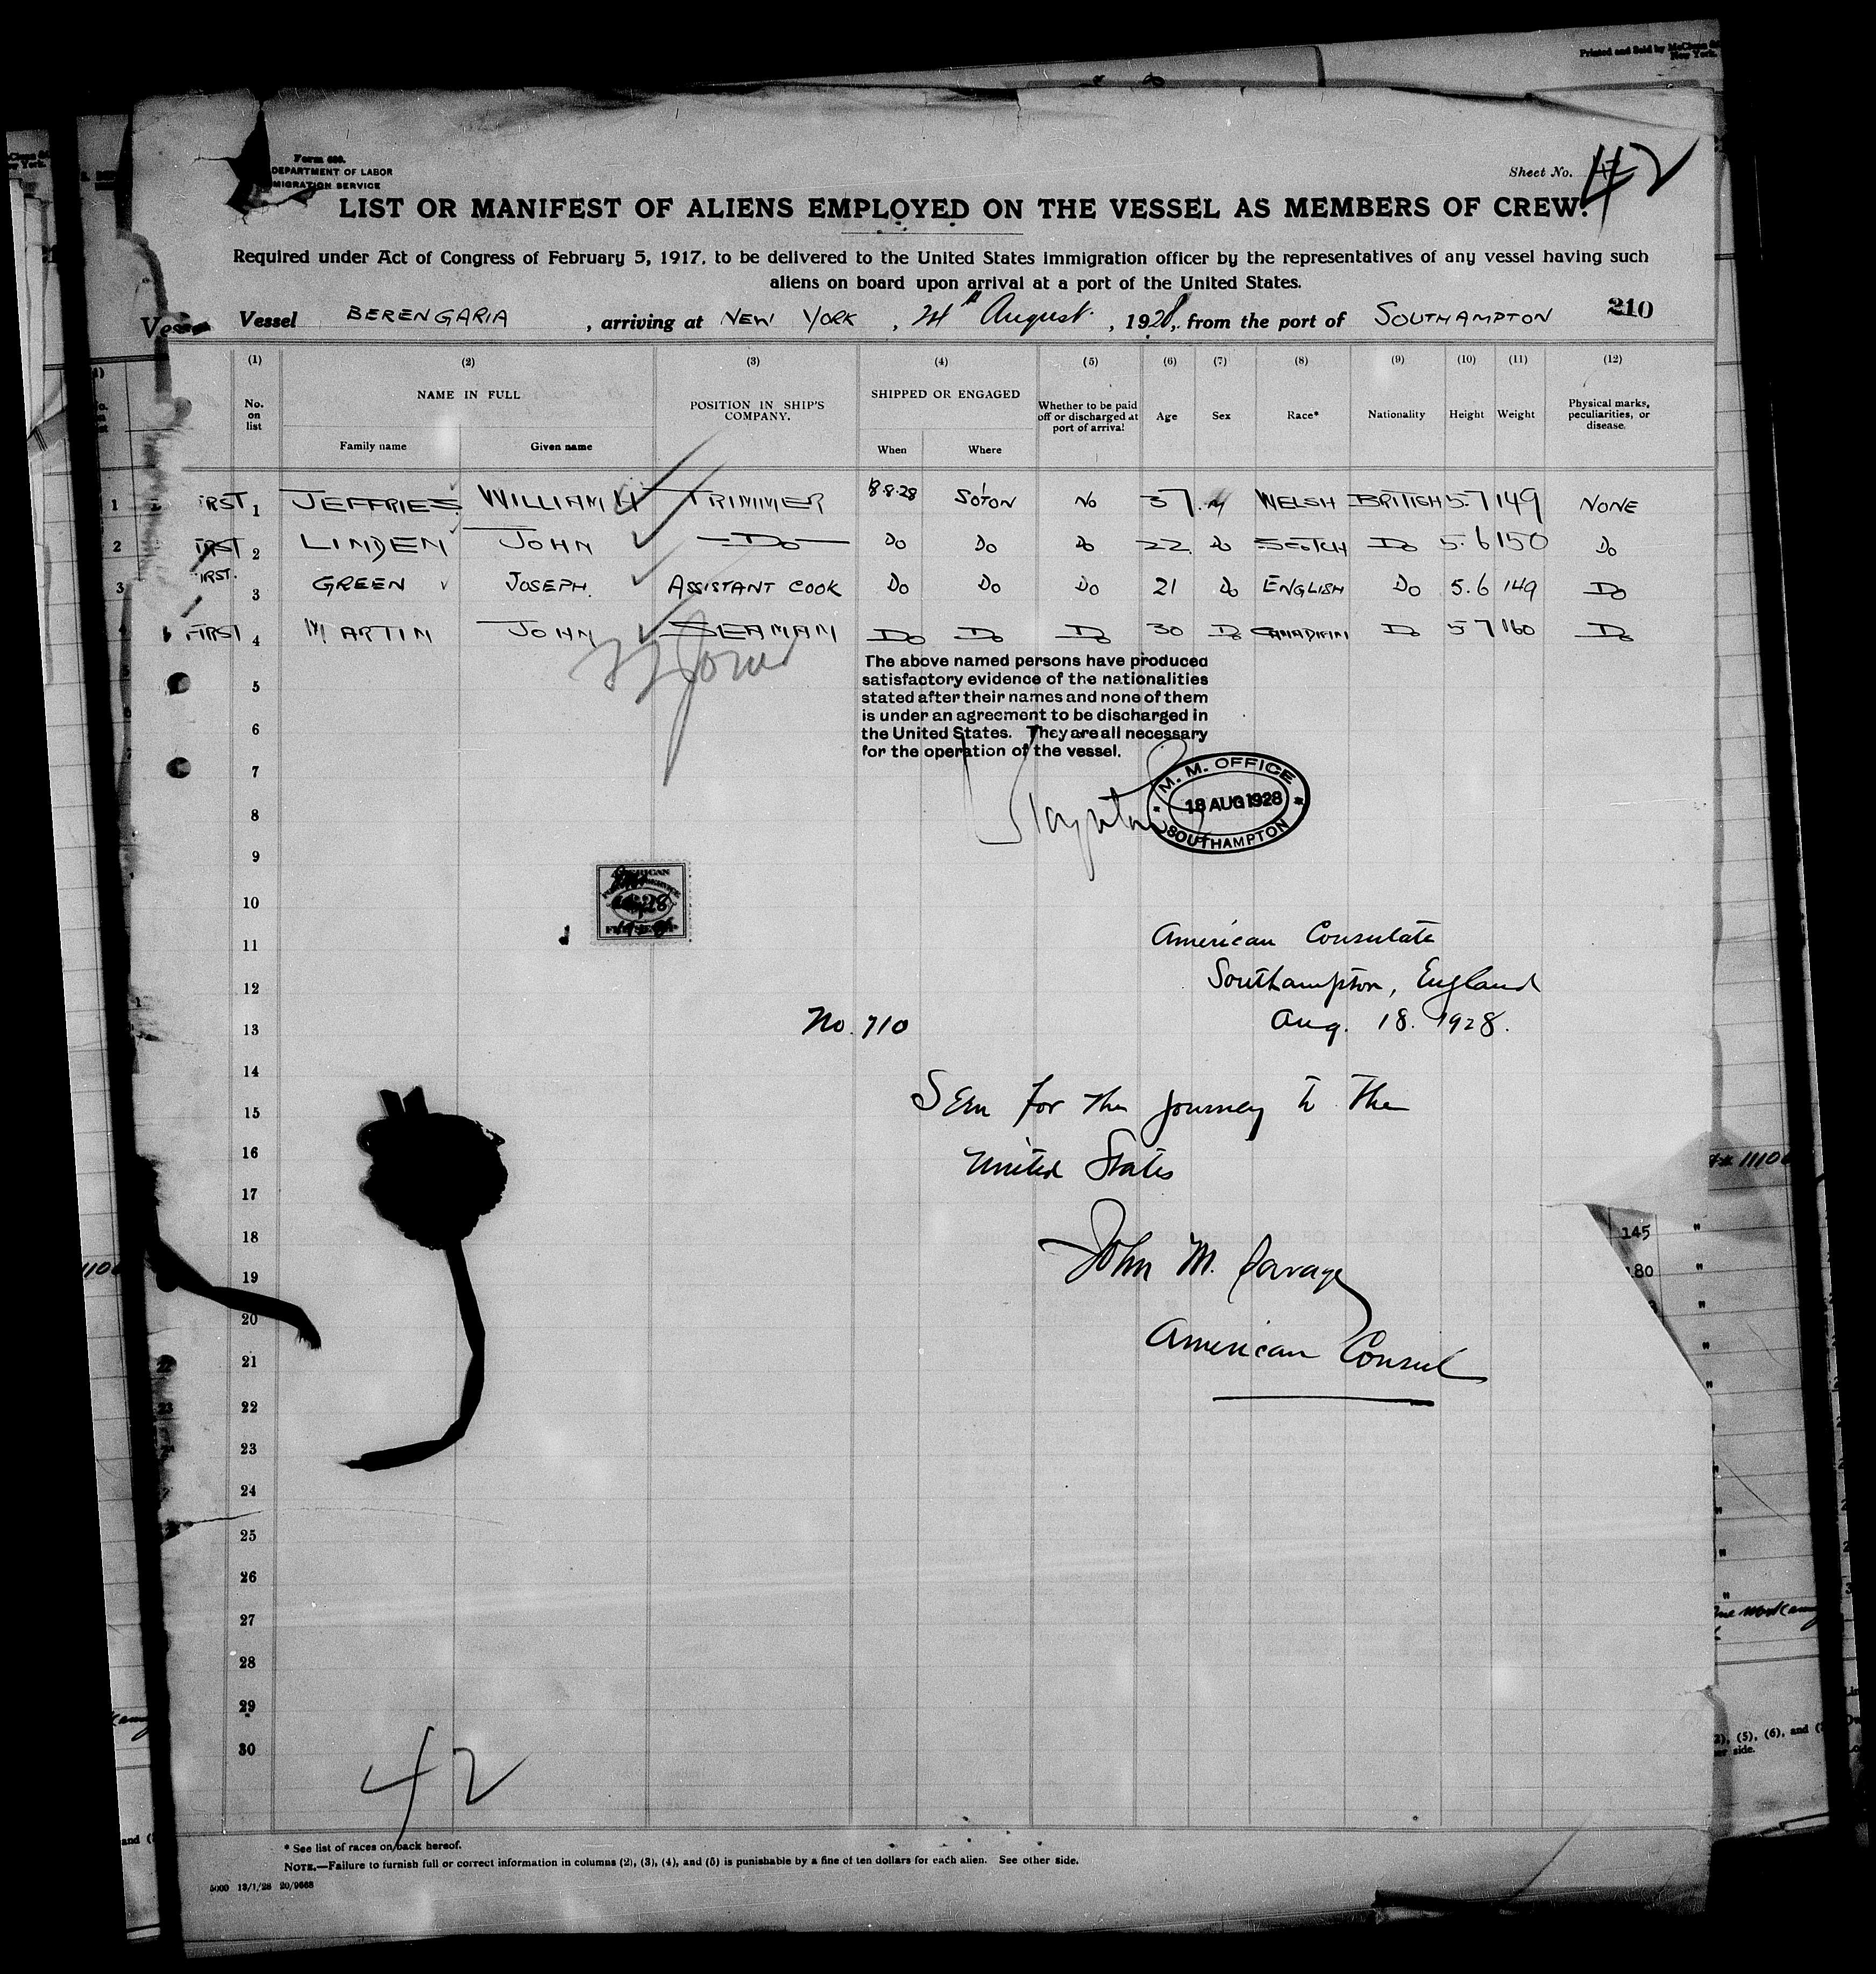 Printed and Sold by McClunn
New York.
Form 689.
DEPARTMENT OF LABOR
MIGRATION SERVICE
Sheet No. 42
LIST OR MANIFEST OF ALIENS EMPLOYED ON THE VESSEL AS MEMBERS OF CREW.
Required under Act of Congress of February 5, 1917, to be delivered to the United States immigration officer by the representatives of any vessel having such
aliens on board upon arrival at a port of the United States.
Vessel BERENGARIA, arriving at NEW YORK, 24th August, 1928, from the port of SOUTHAMPTON 210
(1) (2) (3) (4) (5) (6) (7) (8) (9) (10) (11) (12)
No. on list NAME IN FULL Family name Given name POSITION IN SHIP'S COMPANY. SHIPPED OR ENGAGED When Where Whether to be paid off or discharged at port of arrival Age Sex Race* Nationality Height Weight Physical marks, peculiarities, or disease.
IRST 1 JEFFRIES WILLIAM H TRIMMER 8.8.28 SO'TON NO 37 M WELSH BRITISH 5.7 149 NONE
IRST 2 LINDEN JOHN Do Do Do Do 22 Do SCOTCH Do 5.6 150 Do
IRST. 3 GREEN JOSEPH. ASSISTANT COOK Do Do Do 21 Do ENGLISH Do 5.6 149 Do
FIRST 4 MARTIN JOHN SEAMAN Do Do Do 30 Do CANADIAN Do 5 7 160 Do
The above named persons have produced
satisfactory evidence of the nationalities
stated after their names and none of them
is under an agreement to be discharged in
the United States. They are all necessary
for the operation of the vessel.
M. M. OFFICE
18 AUG 1928
SOUTHAMPTON
5
6
7
8
9
10
11
12
13
14
15
16
17
18
19
20
21
22
23
24
25
26
27
28
29
30
American Consulate
Southampton, England
Aug. 18. 1928.
No. 710
Seen for the journey to the
United States
John M. Savage
American Consul
145
180
42
* See list of races on back hereof.
NOTE.—Failure to furnish full or correct information in columns (2), (3), (4), and (5) is punishable by a fine of ten dollars for each alien. See other side.
5000 13/1/28 20/9668